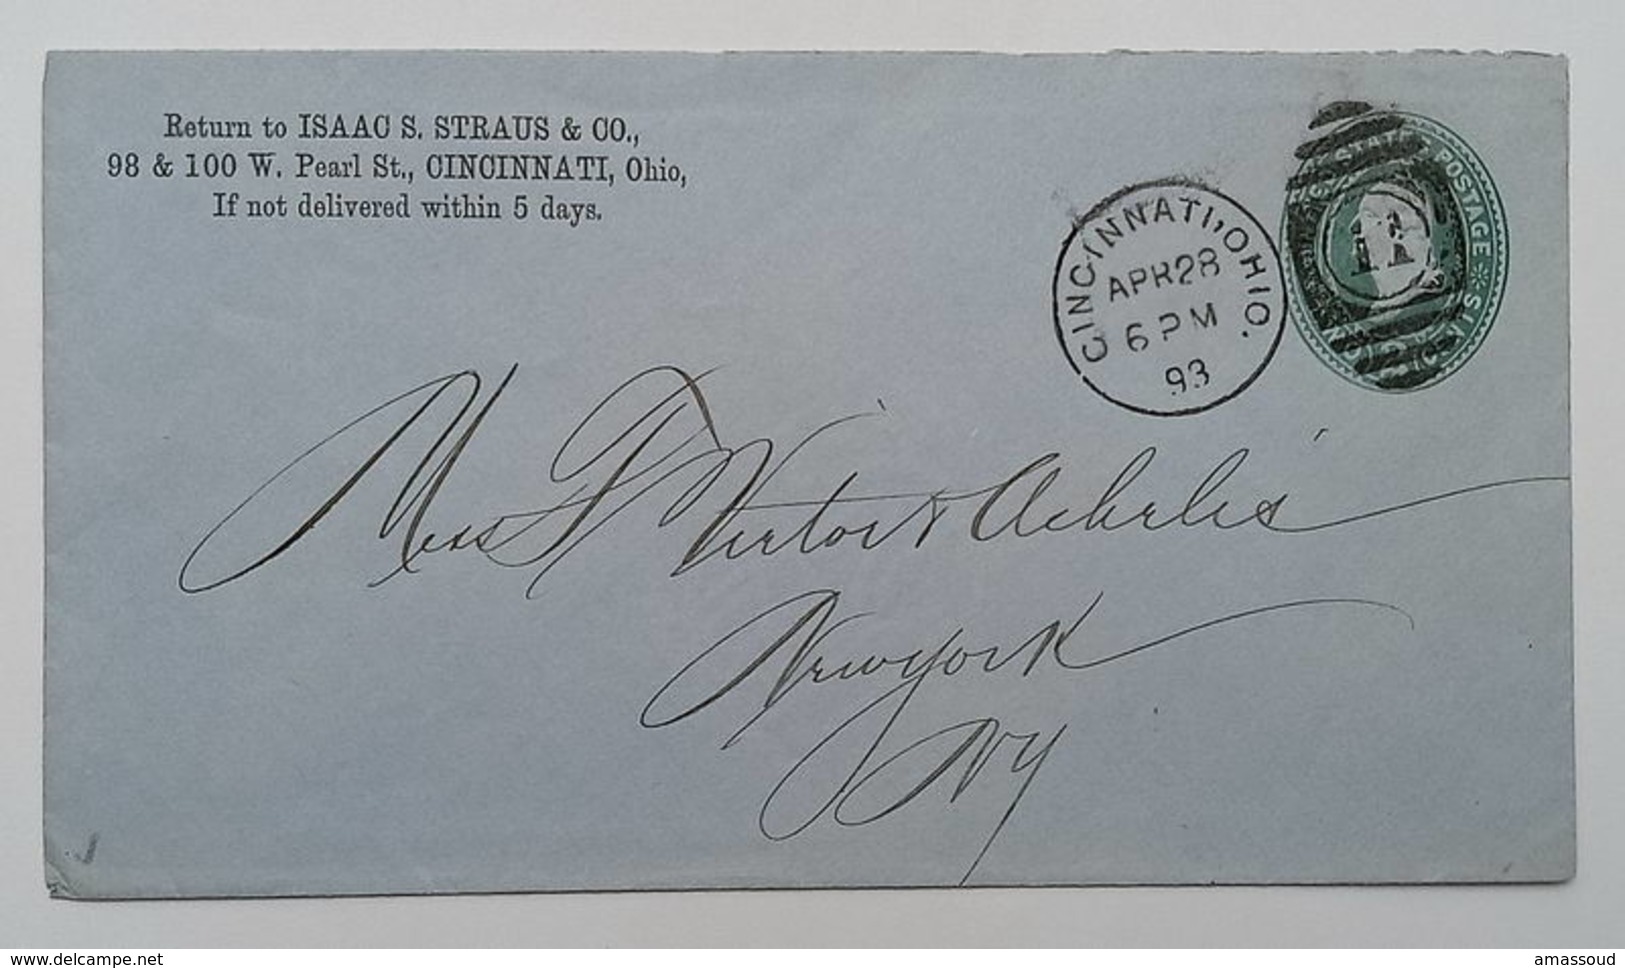 Return to ISAAC S. STRAUS & CO.,
98 & 100 W. Pearl St., CINCINNATI, Ohio,
If not delivered within 5 days.
CINCINNATI, OHIO.
APR 28
6 PM
93
STATES POSTAGE
11
Mess F Victor & Achelis
New York
NY
www.delcampe.net
amassoud